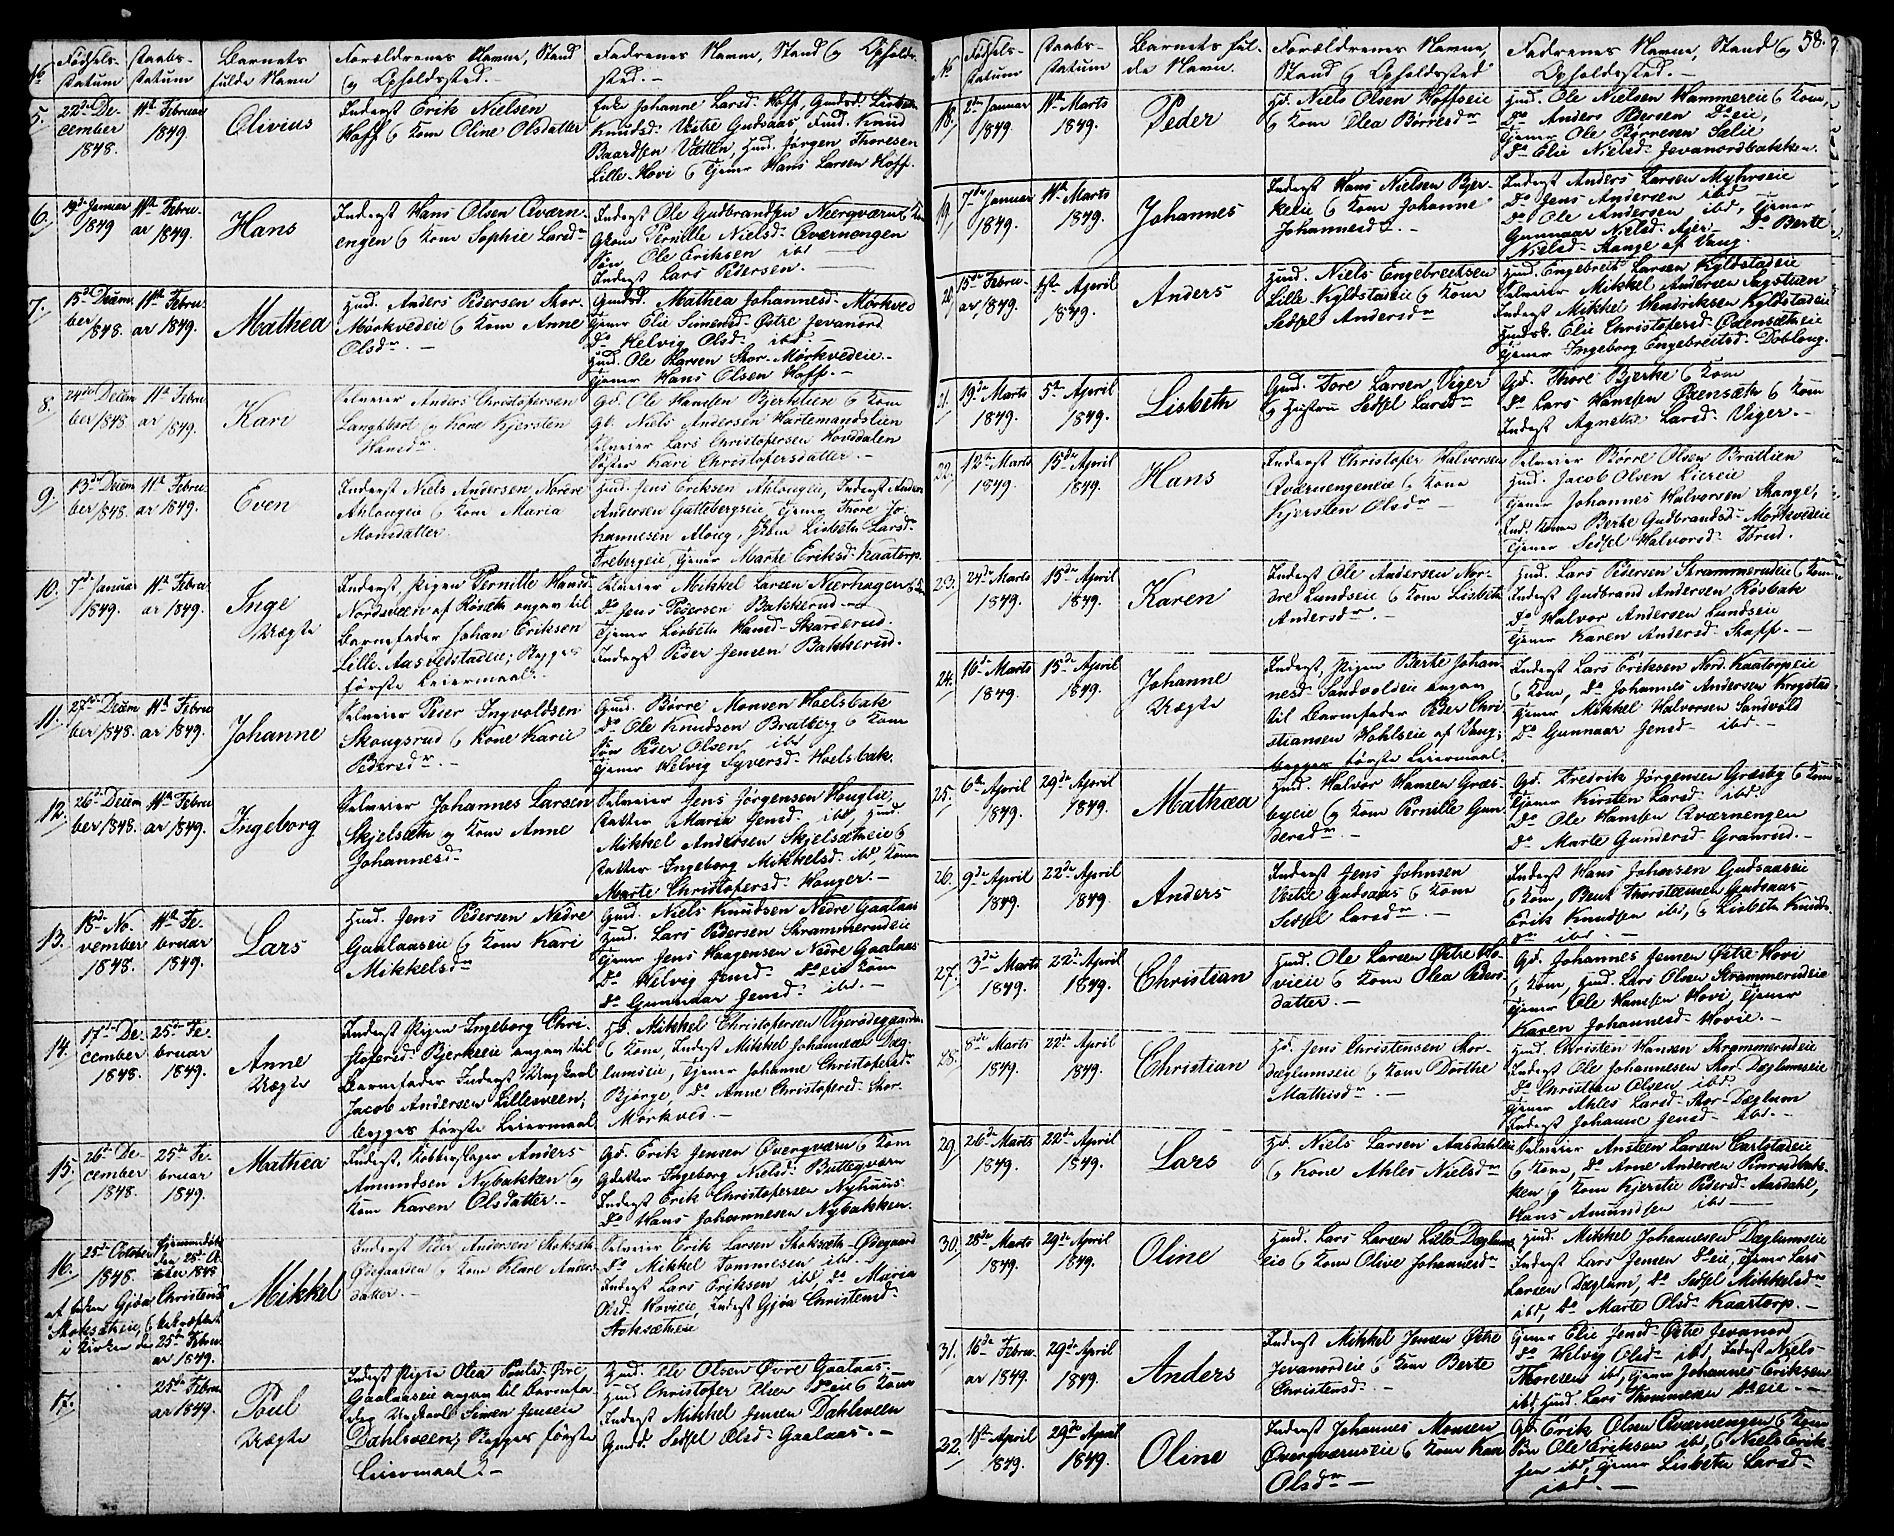 58.
No
Fødsels-
datum
Daabs-
datum
Barnets
fulde Navn
Forældrenes Navne, Stand
og Opholdssted.
Fadrenes Navne, Stand og Opholds-
sted.
5.
22de De-
cember
1848.
11te Februar
1849.
Olivius
Inderst Erik Nielsen
Hoff & Kone Oline Olsdatter
Enke Johanne Larsd. Hoff, Gaardsd. Lisbeth
Knudsd. Vestre Gudsaas, Knud
Baardsen Vatten, Huusm. Jørgen Thoresen
Lille-Hovi & Tjener Hans Larsen Hoff.
6.
19de Januar
1849
11te Febru-
ar 1849.
Hans
Inderst Hans Olsen Qværn-
engen & Kone Sophie Larsdr
Inderst Ole Gudbrandsen Neerqværn & Kone
Pernille Nielsd. Qværnengen
Søn Ole Eriksen ibd
Inderst Lars Pedersen.
7.
15de Decem-
ber 1848.
11te Febru-
ar 1849.
Mathea
Huusm. Anders Pedersen Stor-
Mørkvedeie & Kone Anne
Olsdr.
Mathea Johannesd. Mørkved
Tjener Elie Simensd. Østre Jevanord
Do Helvig Olsd. ibd.
Huusm. Ole Larsen Stor-Mørkvedeie
Tjener Hans Olsen Hoff.
8.
24de Decem-
ber 1848
11te Febru-
ar 1849.
Kari
Selveier Anders Christofersen
og Kone Kjersten
Hansdr
Gd. Ole Hansen Bjerkelien & Kone
Gd. Niels Andersen Hartemandslien
Selveier Lars Christofersen Houdalen
Søster Kari Christofersdatter.
9.
13de Decem-
ber 1848.
11te Febru-
ar 1849.
Even
Inderst Niels Andersen Nordre
Ahlougeie & Kone Maria
Monsdatter
Huusm. Jens Eriksen Ahlougeie, Inderst Anders
Andersen Guttebergseie, Tjener Thore Jo-
hannesen Aloug, Kone Lisbeth Larsdr
Frebergeie, Tjener Marte Eriksd. Kaatorp.
10.
7de Januar
1849.
11te Febru-
ar 1849.
Inge
Uægte
Inderst Pigen Pernille Hansd.
Nordsveen af Røseth angav til
Barnefader Johan Eriksen
Lille-Aasvedstadeie; Begges
første Leiermaal.
Selveier Mikkel Larsen Neerhagen & Kone
Do Jens Pedersen Bakkerud
Tjener Lisbeth Hansd. Skarderud.
Inderst Peder Jensen Bakkerud.
11.
27de Decem-
ber 1848.
11te Febru-
ar 1849.
Johanne
Selveier Peder Ingvoldsen
Skougsrud & Kone Karie
Pedersdr.
Gaard. Børre Monsen Hoelsbak
Do Ole Knudsen Bratberg & Kone
Søn Peder Olsen ibd
Tjener Helvig Syversd. Hoelsbak.
12.
26de Decem-
ber 1848.
11te Febru-
ar 1849.
Ingeborg
Selveier Johannes Larsen
Skjelsæth og Kone Anne
Johannesd.
Selveier Jens Jørgensen Houglie,
Datter Maria Jensd. ibd Huusm.
Mikkel Andersen Skjelsætheie &
Datter Ingeborg Mikkelsd. ibd, Kone
Marte Christofersd. Houger.
13.
18de No-
vember
1848.
11te Fe-
bruar
1849.
Lars
Huusm. Jens Pedersen Nedre
Gaalaaseie & Kone Kari
Mikkelsdr
Gaard. Niels Knudsen Nedre Gaalaas
Huusm. Lars Pedersen Skrammerudeie
Tjener Jens Haagensen Nedre Gaalaas
Do Helvig Jensd. Do eie Kone
Do Gunnaar Jensd. ibd.
14.
17de De-
cember
1848.
25de Fe-
bruar
1849.
Anne
Uægte
Inderst Pigen Ingeborg Chri-
stofersd. Bjerkeeie angav til
Barnefader Inderst Ungkarl
Jacob Andersen Lillesveen;
begges første Leiermaal
Gd. Mikkel Christofersen Vigerødegaarden
& Kone, Inderst Mikkel Johannesen Dæg-
lumseie, Tjener Johanne Christofersdr
Bjørge, Do Anne Christofersd. Stor-
Mørkved.
15.
26de De-
cember
1848.
25de Fe-
bruar
1849.
Mathea
Inderst, Kobberslager Anders
Amundsen Nybakken og
Kone Karen Olsdatter.
Gd. Erik Jensen Øvergværn & Kone
Gdatter Ingeborg Nielsd. Butteqværn
Inderst Erik Christofersen Nyhuus
Do Hans Johannesen Nybakken.
16.
25de October
1848.
af Gjøa
Stoksætheie, &
i Kirken den
Hjemmedøbt
den 25de Oc-
tober 1848
Christensd.
bekræftet
25de Febru-
ar 1849.
Mikkel
Inderst Peder Andersen Stoksæth
Ødegaarden & Kone Klare Anders-
datter.
Selveier Erik Larsen Stoksæth-Ødegaard
Do Mikkel Tommesen ibd.
Inderst Lars Eriksen ibd Do Maria
Olsd. Hovieie, Inderst Gjøa Christensd.
Stoksætheie
17.
25de Febru-
ar 1849.
Poul
Uægte
Inderst Pigen Olea Poulsd. Øvre
Gaalaaseie angav til Barnefa-
der Ungkarl Simen Jensen
Dahlsveen; Begges første
Leiermaal.
Huusm. Ole Olsen Øvre Gaalaas-
Huusm. Christofer Olsen Do eie & Kone
Inderst Mikkel Jensen Dahlsveen
Gaardm. Sedsel Olsd. Gaalaas.
No
Fødsels-
datum
Daabs-
datum
Barnets ful-
de Navn.
Forældrenes Navne,
Stand & Opholdssted
Fadrenes Navne, Stand og
Opholdssted.
18.
2den Januar
1849.
11te Marts
1849.
Peder
Gd. Niels Olsen Hoffseie
& Kone Olea Børresdr
Huusm. Ole Nielsen Hammereie & Kone,
Do Anders Pedersen Do eie,
Tjener Ole Børresen Sælie
Do Elie Nielsd. Jevanordbakken.
19.
7de Januar
1849.
11te Marts
1849.
Johannes
Inderst Hans Nielsen Bjer-
keeie & Kone Johanne
Johannesd.
Inderst Anders Larsen Myhrseie
Do Jens Andersen ibd
Do Ole Andersen ibd, Tjener
Gunnaar Nielsd. Ajer. Do Berte
Nielsd. Stange af Vang.
20.
15de Febru-
ar 1849.
April
1849.
Anders
Huusm. Niels Engebretsen
Lille-Kyldstadeie & Kone
Sedsel Andersdr
Huusm. Engebret Larsen Kyldstadeie
Selveier Mikkel Andersen Sagstuen
Inderst Mikkel Hendriksen Kyldstadeie
Elie Christofersd. Oxensætheie
Tjener Ingeborg Engebretsd. Doblong.
21.
19de Marts
1849.
5te April
1849.
Lisbeth
Gaard. Tore Larsen Viger
og Hustru Sedsel Larsdr
Gd. Thore Bjerke & Kone
Do Lars Hansen Oxensæth & Kone
Inderst Agnethe Larsd. Viger.
22.
12te Marts
1849.
15de April
1849.
Hans
Inderst Christofer Halvorsen
Qværnengeneie & Kone
Kjersten Olsdr
Selveier Børre Olsen Brattlien
Huusm. Jacob Olsen Liereie
Tjener Johannes Halvorsen Stange,
Ind. Kone Berte Gudbrandsd. Mørkvedeie
Tjener Sedsel Halvorsd. Torud.
23.
24de Marts
1849.
15de April
1849.
Karen
Inderst Ole Andersen Nor-
dre Lundseie & Kone Lisbeth
Andersdr.
Huusm. Lars Pedersen Skrammerudeie & Kone
Inderst Gudbrand Andersen Røsbak
Do Halvor Andersen Lundseie
Tjener Karen Andersd. Skapp.
24.
10de Marts
1849.
15de April
1849.
Johanne
Uægte
Inderst, Pigen Berte Johan-
nesd. Sandvoldeie angav
til Barnefader Peder Chri-
stiansen Hohlseie af Vang;
begges første Leiermaal.
Inderst Lars Eriksen Nord. Kaatorpeie
& Kone, Do Johannes Andersen Krogstad
Tjener Mikkel Halvorsen Sandvold
Do Gunnaar Jensd. ibd.
25.
6te April
1849.
29de April
1849.
Mathæa
Huusm. Halvor Hansen Græs-
byeie & Kone Pernille Gun-
dersdr.
Gd. Fredrik Jørgensen Græsby & Kone
Tjener Kirsten Larsd. ibd.
Do Ole Hansen Qværnengen
Do Marte Gundersd. Granrud.
26.
9de April
1849.
22de April
1849.
Anders
Inderst Jens Johnsen
Vestre Gudsaas & Kone
Sedsel Larsdr.
Inderst Hans Johansen Gudsaaseie
& Kone, Bent Thorstensen Gudsaas
Erik Knudsen ibd, & Lisbeth Knuds-
dr ibd.
27.
3die Marts
1849.
22de April
1849.
Christian
Huusm. Ole Larsen Østre Ho-
vieie & Kone Olea Peders-
datter.
Gd. Johannes Jensen Østre Hovi
& Kone, Huusm. Lars Olsen Skrammerudeie
Tjener Ole Hansen Hovi, Tjener
Karen Johannesd. Hovie.
28.
8de Marts
1849.
22de April
1849.
Christian
Gd. Jens Christensen Stor-
dæglumseie & Kone Dorthe
Mathisdr.
Huusm. Christen Hansen Skrammerudeie
Inderst Ole Johannesen Stor-Dæglumseie
Do Christian Olsen ibd
Tjener Ahles Larsd. Stor-Dæglum
Inderst Johanne Jensd. ibd.
29.
26de Marts
1849.
22de April
1849.
Lars
Gd. Niels Larsen Aasdahleie
& Kone Ahles Nielsdr
Selveier Ansteen Larsen Carlstadeie
& Kone, Do Arne Andersen Finrudbak-
ken & Kone Kjerstie Pedersd. Aasdahl,
Hans Amundsen ibd
30.
28de Marts
1849.
29de April
1849.
Oline
Huusm. Lars Larsen Lille-Dæglums-
eie & Kone Olive Johannesdr
Huusm. Mikkel Johannesen Dæglumseie
Inderst Lars Jensen Do eie, Tjener Lars
Larsen Dæglum, Do Sedsel Mikkelsdr
ibd, Do Marte Olsd. Kaatorp.
31.
16de Febru-
ar 1849.
29de April
1849.
Anders
Inderst Mikkel Jensen Østre
Jevanordeie & Kone Berte
Christensd.
Tjener Elie Jensd. Østre Jevanord
Do Helvig Olsd. ibd, Inderst Niels
Thoresen ibd, Tjener Johannes Eriksen
ibd, Huusm. Lars Thommesen Do eie.
32.
1ste April
1849.
29de April
1849.
Oline
Inderst Johannes Monsen
Øvergværnseie & Kone Kari
Olsdr
Gd. Erik Olsen Qværnengen & Kone
Søn Ole Eriksen ibd, & Niels Erik-
sen ibd, Tjener Lisbeth Larsd.
ibd.